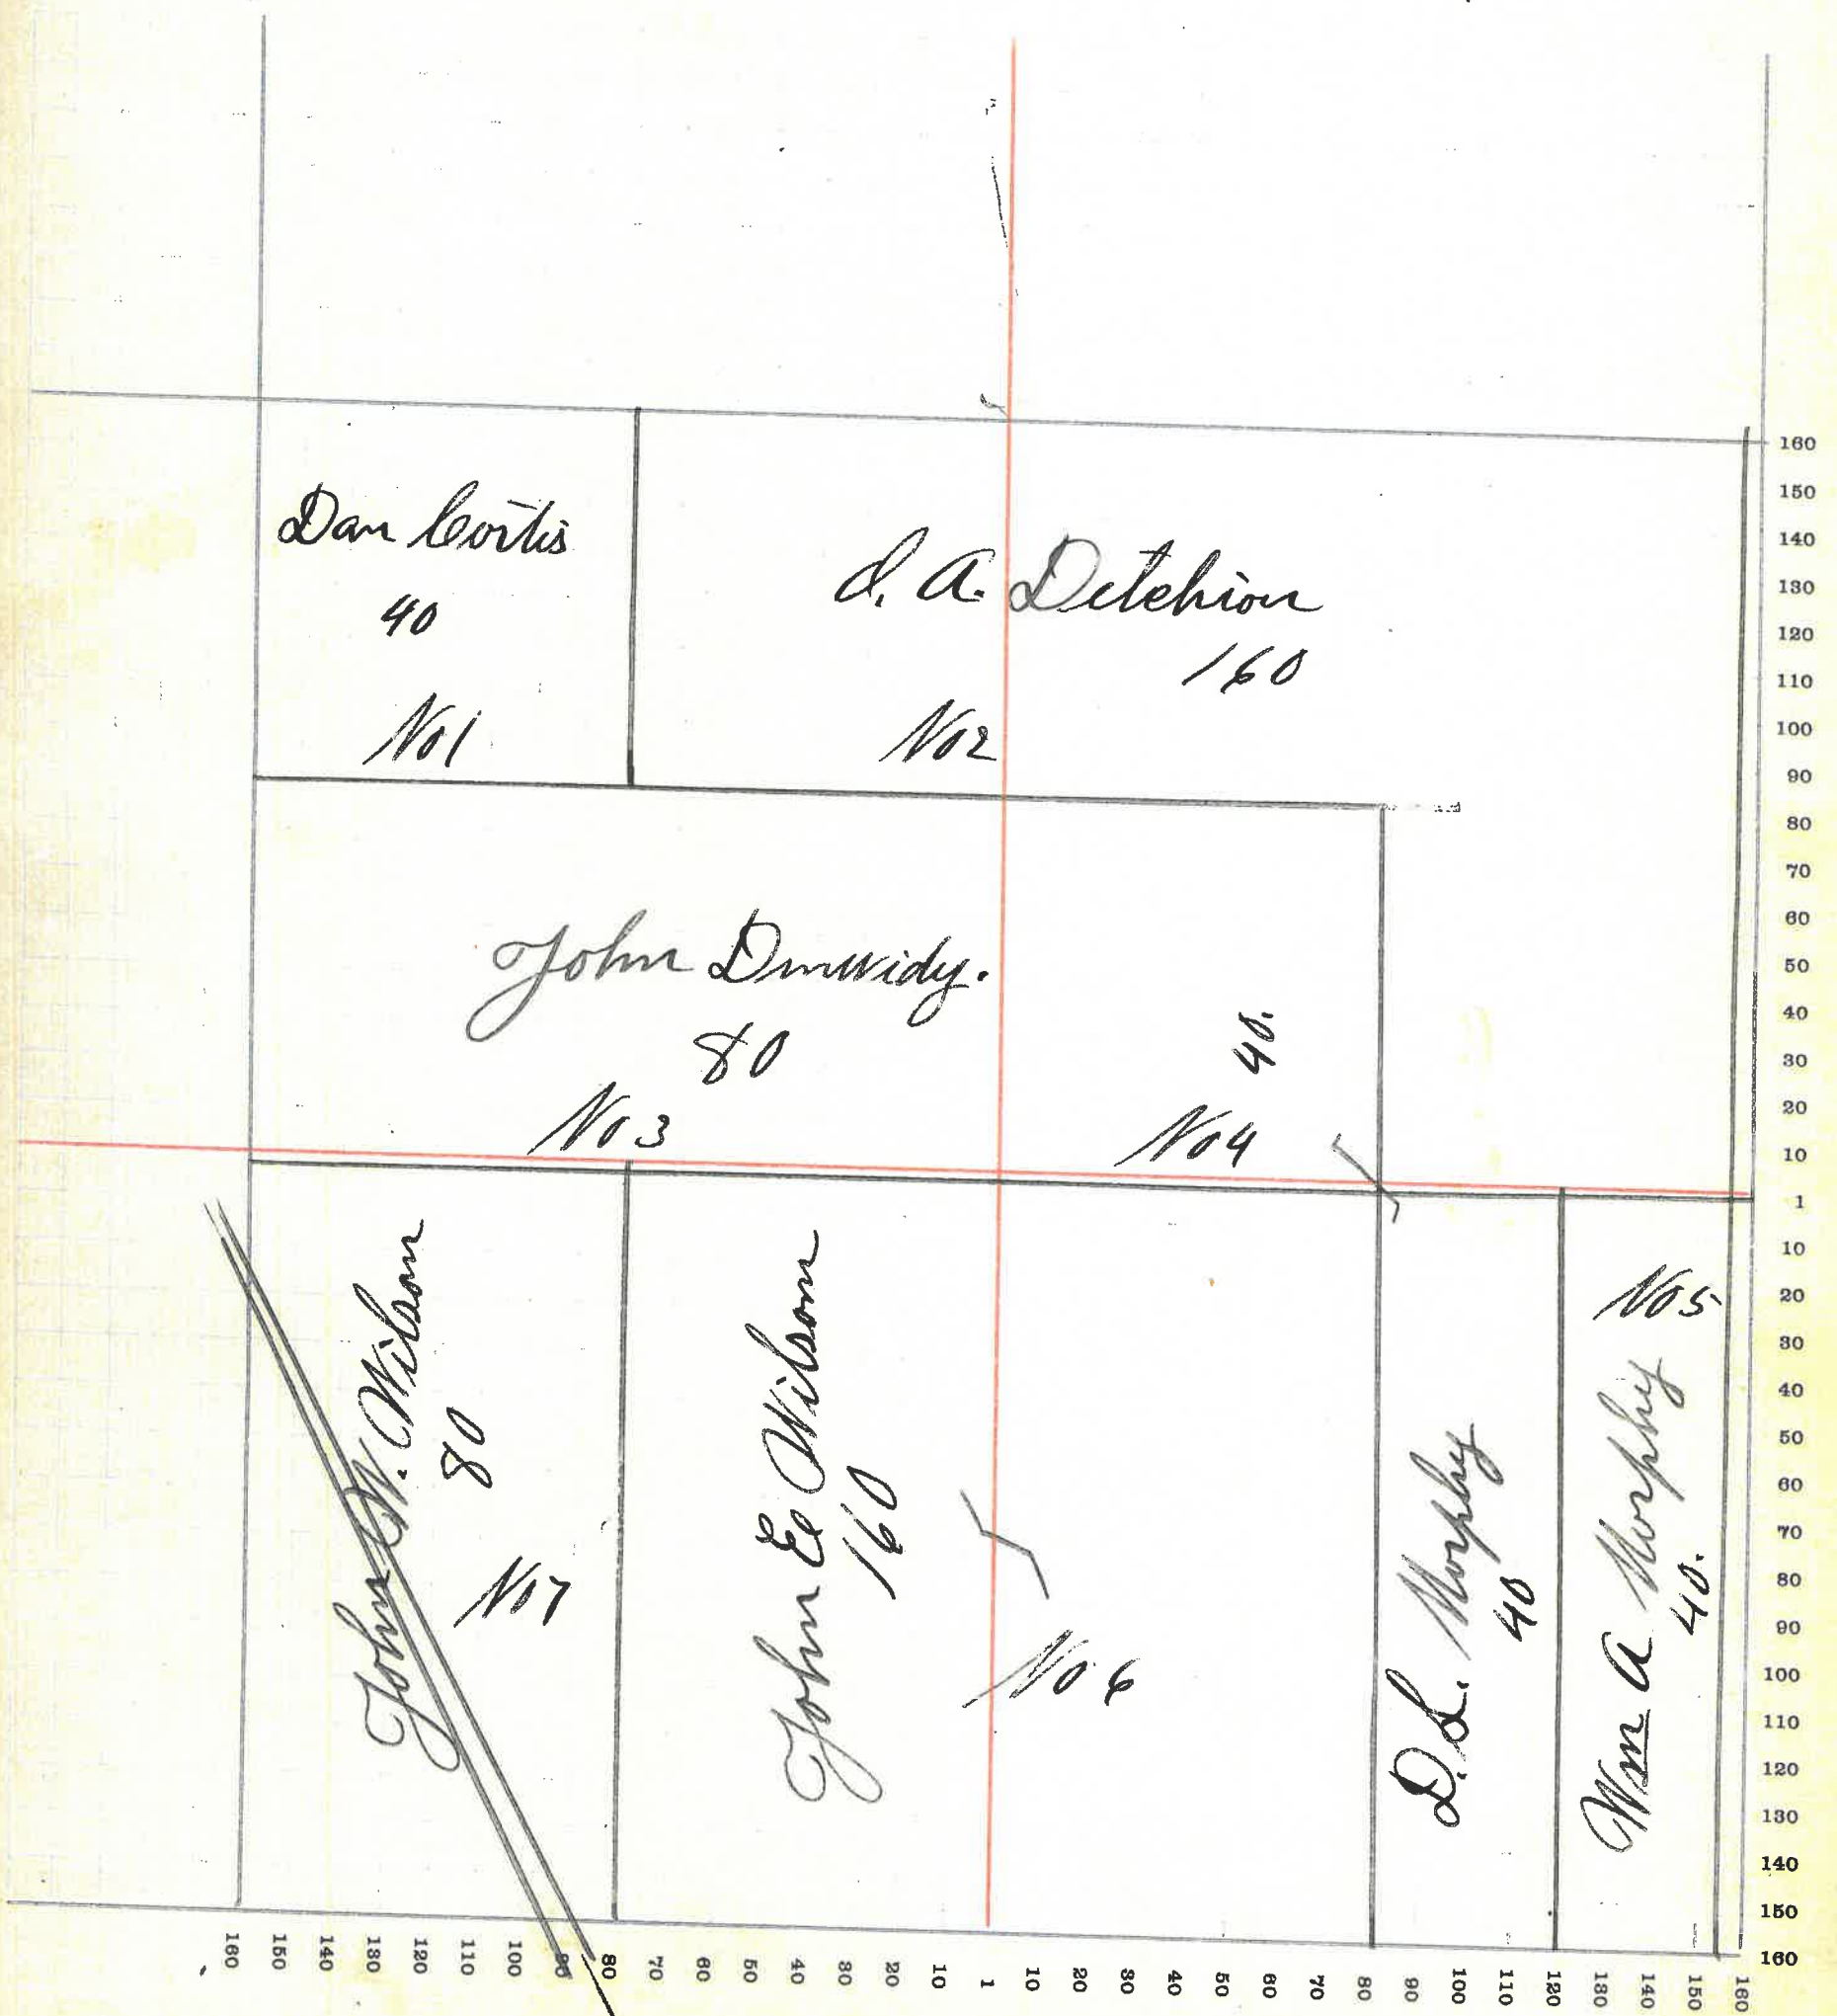 Dan Cortis
40
No 1
J. A. Detchion
160
No 2
John Dinwidy.
80
No 3
40.
No 4
John W. Wilson
80
No 7
John E Wilson
160
No 6
D. L. Morphy
40
No 5
Wm A Morphy
40.
160
150
140
130
120
110
100
90
80
70
60
50
40
30
20
10
1
10
20
30
40
50
60
70
80
90
100
110
120
130
140
150
160
160 150 140 130 120 110 100 90 80 70 60 50 40 30 20 10 1 10 20 30 40 50 60 70 80 90 100 110 120 130 140 150 160